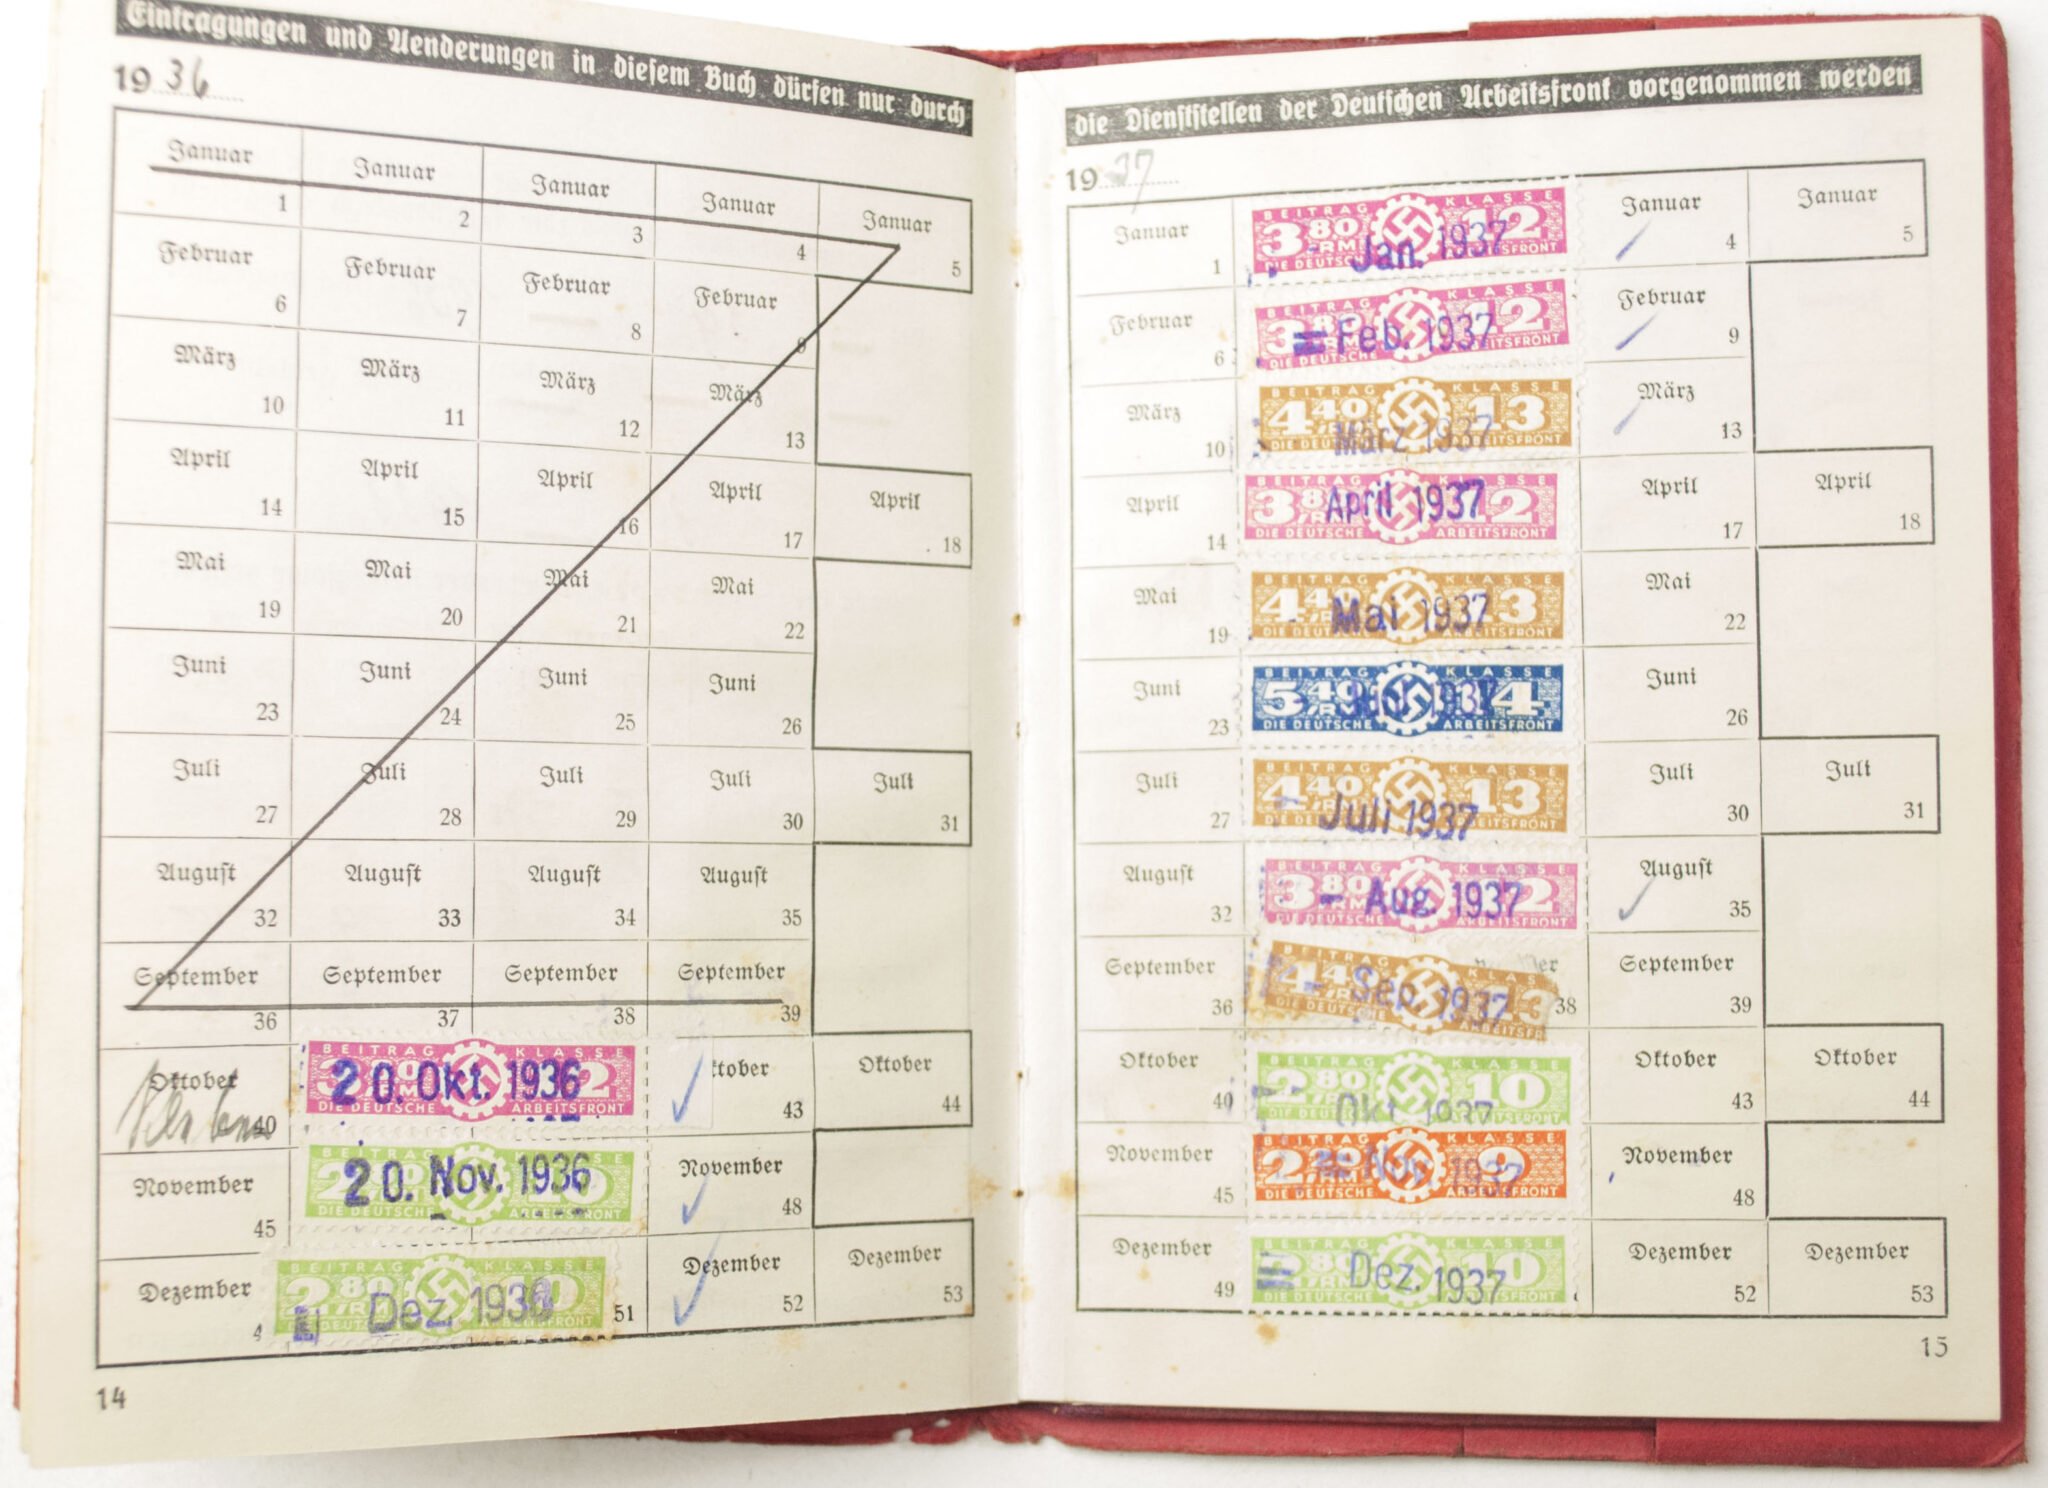 Eintragungen und Aenderungen in diesem Buch dürfen nur durch
1936
Januar Januar Januar Januar Januar
1 2 3 4 5
Februar Februar Februar Februar
6 7 8 9
März März März März
10 11 12 13
April April April April April
14 15 16 17 18
Mai Mai Mai Mai
19 20 21 22
Juni Juni Juni Juni
23 24 25 26
Juli Juli Juli Juli Juli
27 28 29 30 31
August August August August
32 33 34 35
September September September September
36 37 38 39
Oktober BEITRAG KLASSE ktober Oktober
20. Okt. 1936
DIE DEUTSCHE ARBEITSFRONT
40 43 44
November November
20. Nov. 1936
DIE DEUTSCHE ARBEITSFRONT
45 48
Dezember BEITRAG KLASSE Dezember Dezember
2 80 RM Dez. 1936
51 52 53
14
die Dienststellen der Deutschen Arbeitsfront vorgenommen werden
1937
Januar BEITRAG KLASSE Januar Januar
3 80 RM 12 Jan. 1937
DIE DEUTSCHE ARBEITSFRONT
1 4 5
Februar BEITRAG KLASSE Februar
3 80 12 Feb. 1937
DIE DEUTSCHE ARBEITSFRONT
6 9
März BEITRAG KLASSE März
4 40 13 März 1937
DIE DEUTSCHE ARBEITSFRONT
10 13
April BEITRAG KLASSE April April
3 8 2 April 1937
DIE DEUTSCHE ARBEITSFRONT
14 17 18
Mai BEITRAG KLASSE Mai
4 40 3 Mai 1937
DIE DEUTSCHE ARBEITSFRONT
19 22
Juni BEITRAG KLASSE Juni
5 40 RM 14 1937
DIE DEUTSCHE ARBEITSFRONT
23 26
Juli BEITRAG KLASSE Juli Juli
4 40 RM 13 Juli 1937
DIE DEUTSCHE ARBEITSFRONT
27 30 31
August BEITRAG KLASSE August
3 80 RM 2 Aug. 1937
DIE DEUTSCHE ARBEITSFRONT
32 35
September BEITRAG KLAS September
4 40 RM 13 Sep. 1937
DIE DEUTSCHE ARBEITSFR
36 38 39
Oktober BEITRAG KLASSE Oktober Oktober
2 80 RM 10 Okt. 1937
DIE DEUTSCHE ARBEITSFRONT
40 43 44
November BEITRAG KLASSE November
2 9 Nov. 1937
DIE DEUTSCHE ARBEITSFRONT
45 48
Dezember BEITRAG KLASSE Dezember Dezember
2 80 RM 10 Dez. 1937
DIE DEUTSCHE ARBEITSFRONT
49 52 53
15